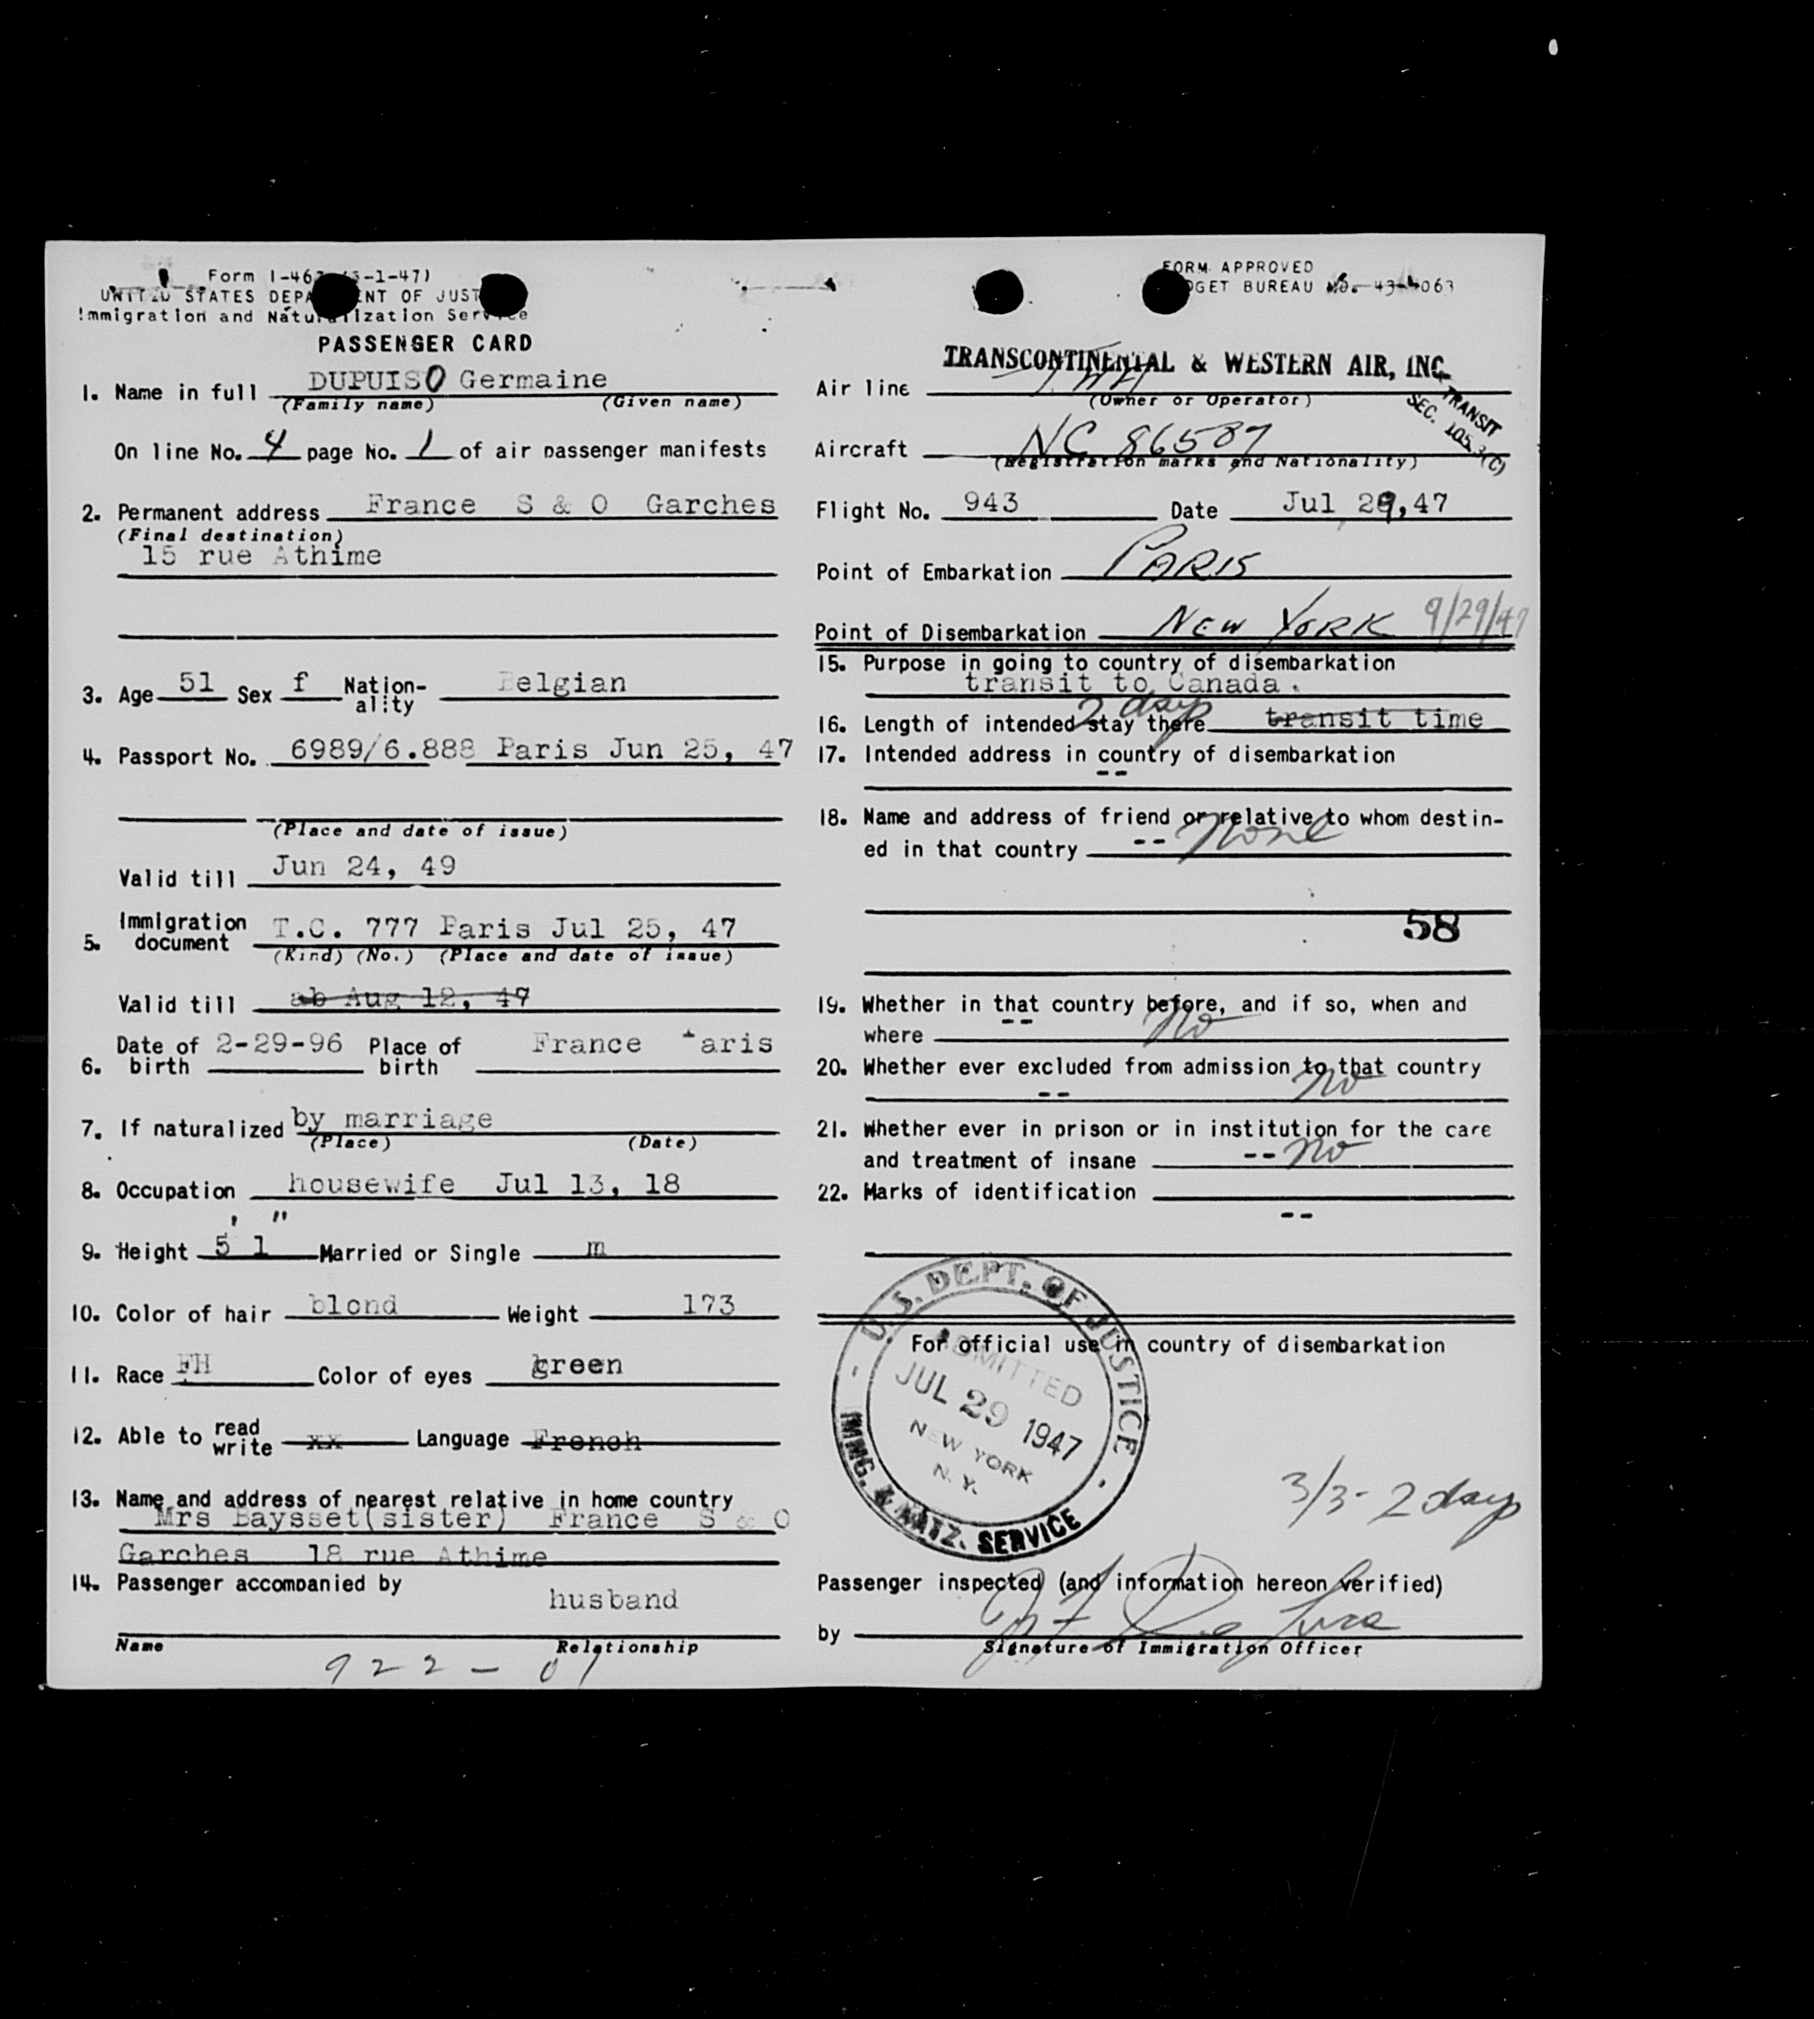 Form I-46
-1-47)
UNITED STATES DEPA ENT OF JUST
Immigration and Naturalization Service
PASSENGER CARD
1. Name in full DUPUIS Germaine
(Family name) (Given name)
On line No. 4 page No. 1 of air passenger manifests
2. Permanent address France S & O Garches
(Final destination)
15 rue Athime
3. Age 51 Sex f Nation-ality Belgian
4. Passport No. 6989/6.888 Paris Jun 25, 47
(Place and date of issue)
Valid till Jun 24, 49
5. Immigration document T.C. 777 Paris Jul 25, 47
(Kind) (No.) (Place and date of issue)
Valid till ab Aug 12, 47
6. Date of birth 2-29-96 Place of birth France Paris
7. If naturalized by marriage
(Place) (Date)
8. Occupation housewife Jul 13, 18
9. Height 5' 1" Married or Single m
10. Color of hair blond Weight 173
11. Race FH Color of eyes green
12. Able to read write xx Language French
13. Name and address of nearest relative in home country
Mrs Baysset(sister) France S & O
Garches 18 rue Athime
14. Passenger accompanied by
husband
Name Relationship
922-01
FORM APPROVED
GET BUREAU No. 43-
063
TRANSCONTINENTAL & WESTERN AIR, INC.
Air line TWA
(Owner or Operator)
TRANSIT
SEC. 105.3(C)
Aircraft NC 86587
(Registration marks and Nationality)
Flight No. 943 Date Jul 29,47
Point of Embarkation PARIS
Point of Disembarkation NEW YORK 9/29/47
15. Purpose in going to country of disembarkation
transit to Canada.
16. Length of intended stay there transit time
2 days
17. Intended address in country of disembarkation
--
18. Name and address of friend or relative to whom destin-
ed in that country -- none
58
19. Whether in that country before, and if so, when and
where -- no
20. Whether ever excluded from admission to that country
-- no
21. Whether ever in prison or in institution for the care
and treatment of insane -- no
22. Marks of identification
--
For official use in country of disembarkation
U.S. DEPT. OF JUSTICE
ADMITTED
JUL 29 1947
NEW YORK
N. Y.
IMMG. & NATZ. SERVICE
3/3- 2 days
Passenger inspected (and information hereon verified)
by
Signature of Immigration Officer